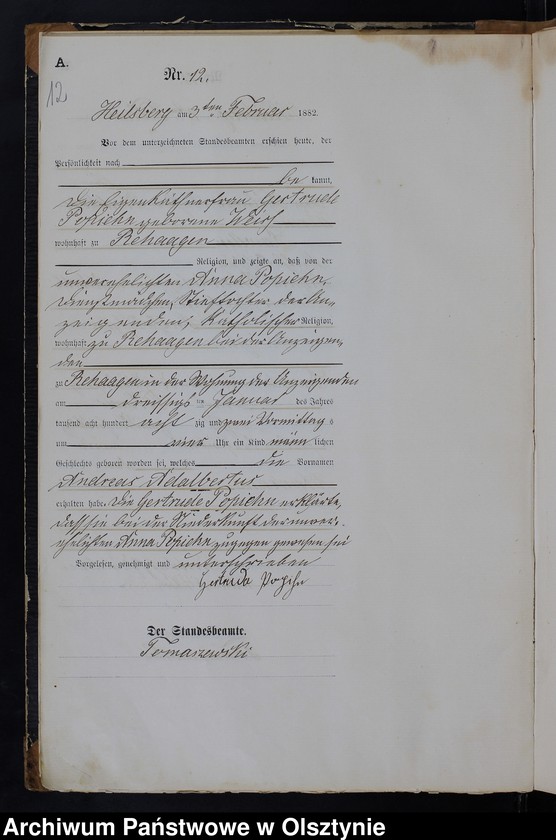 A.
Nr. 12.
12
Heilsberg am 3ten Februar 1882.
Vor dem unterzeichneten Standesbeamten erschien heute, der
Persönlichkeit nach
be kannt,
die Eigenkäthnerfrau Gertrude
Popiehn geborene
wohnhaft zu Rehaagen
Religion, und zeigte an, daß von der
unverehelichten Anna Popiehn,
Dienstmädchen, Stieftochter der An-
zeigenden, katholischer Religion,
wohnhaft zu Rehaagen bei der Anzeigen-
den
zu Rehaagen in der Wohnung der Anzeigenden
am dreissigs ten Januar des Jahres
tausend acht hundert acht zig und zwei Vormittag s
um vier Uhr ein Kind männ lichen
Geschlechts geboren worden sei, welches die Vornamen
Andreas Adalbertus
erhalten habe. Die Gertrude Popiehn erklärte,
dass sie bei der Niederkunft der unver-
ehelichten Anna Popiehn zugegen gewesen sei
Vorgelesen, genehmigt und unterschrieben
Gertrude Popihn
Der Standesbeamte.
Tomaszewski
Archiwum Państwowe w Olsztynie